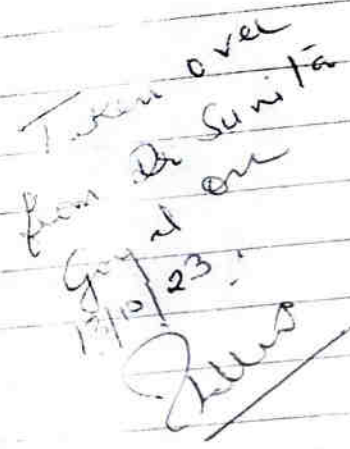 Taken over
from Dr Sunita
Goyal on
/10/23.